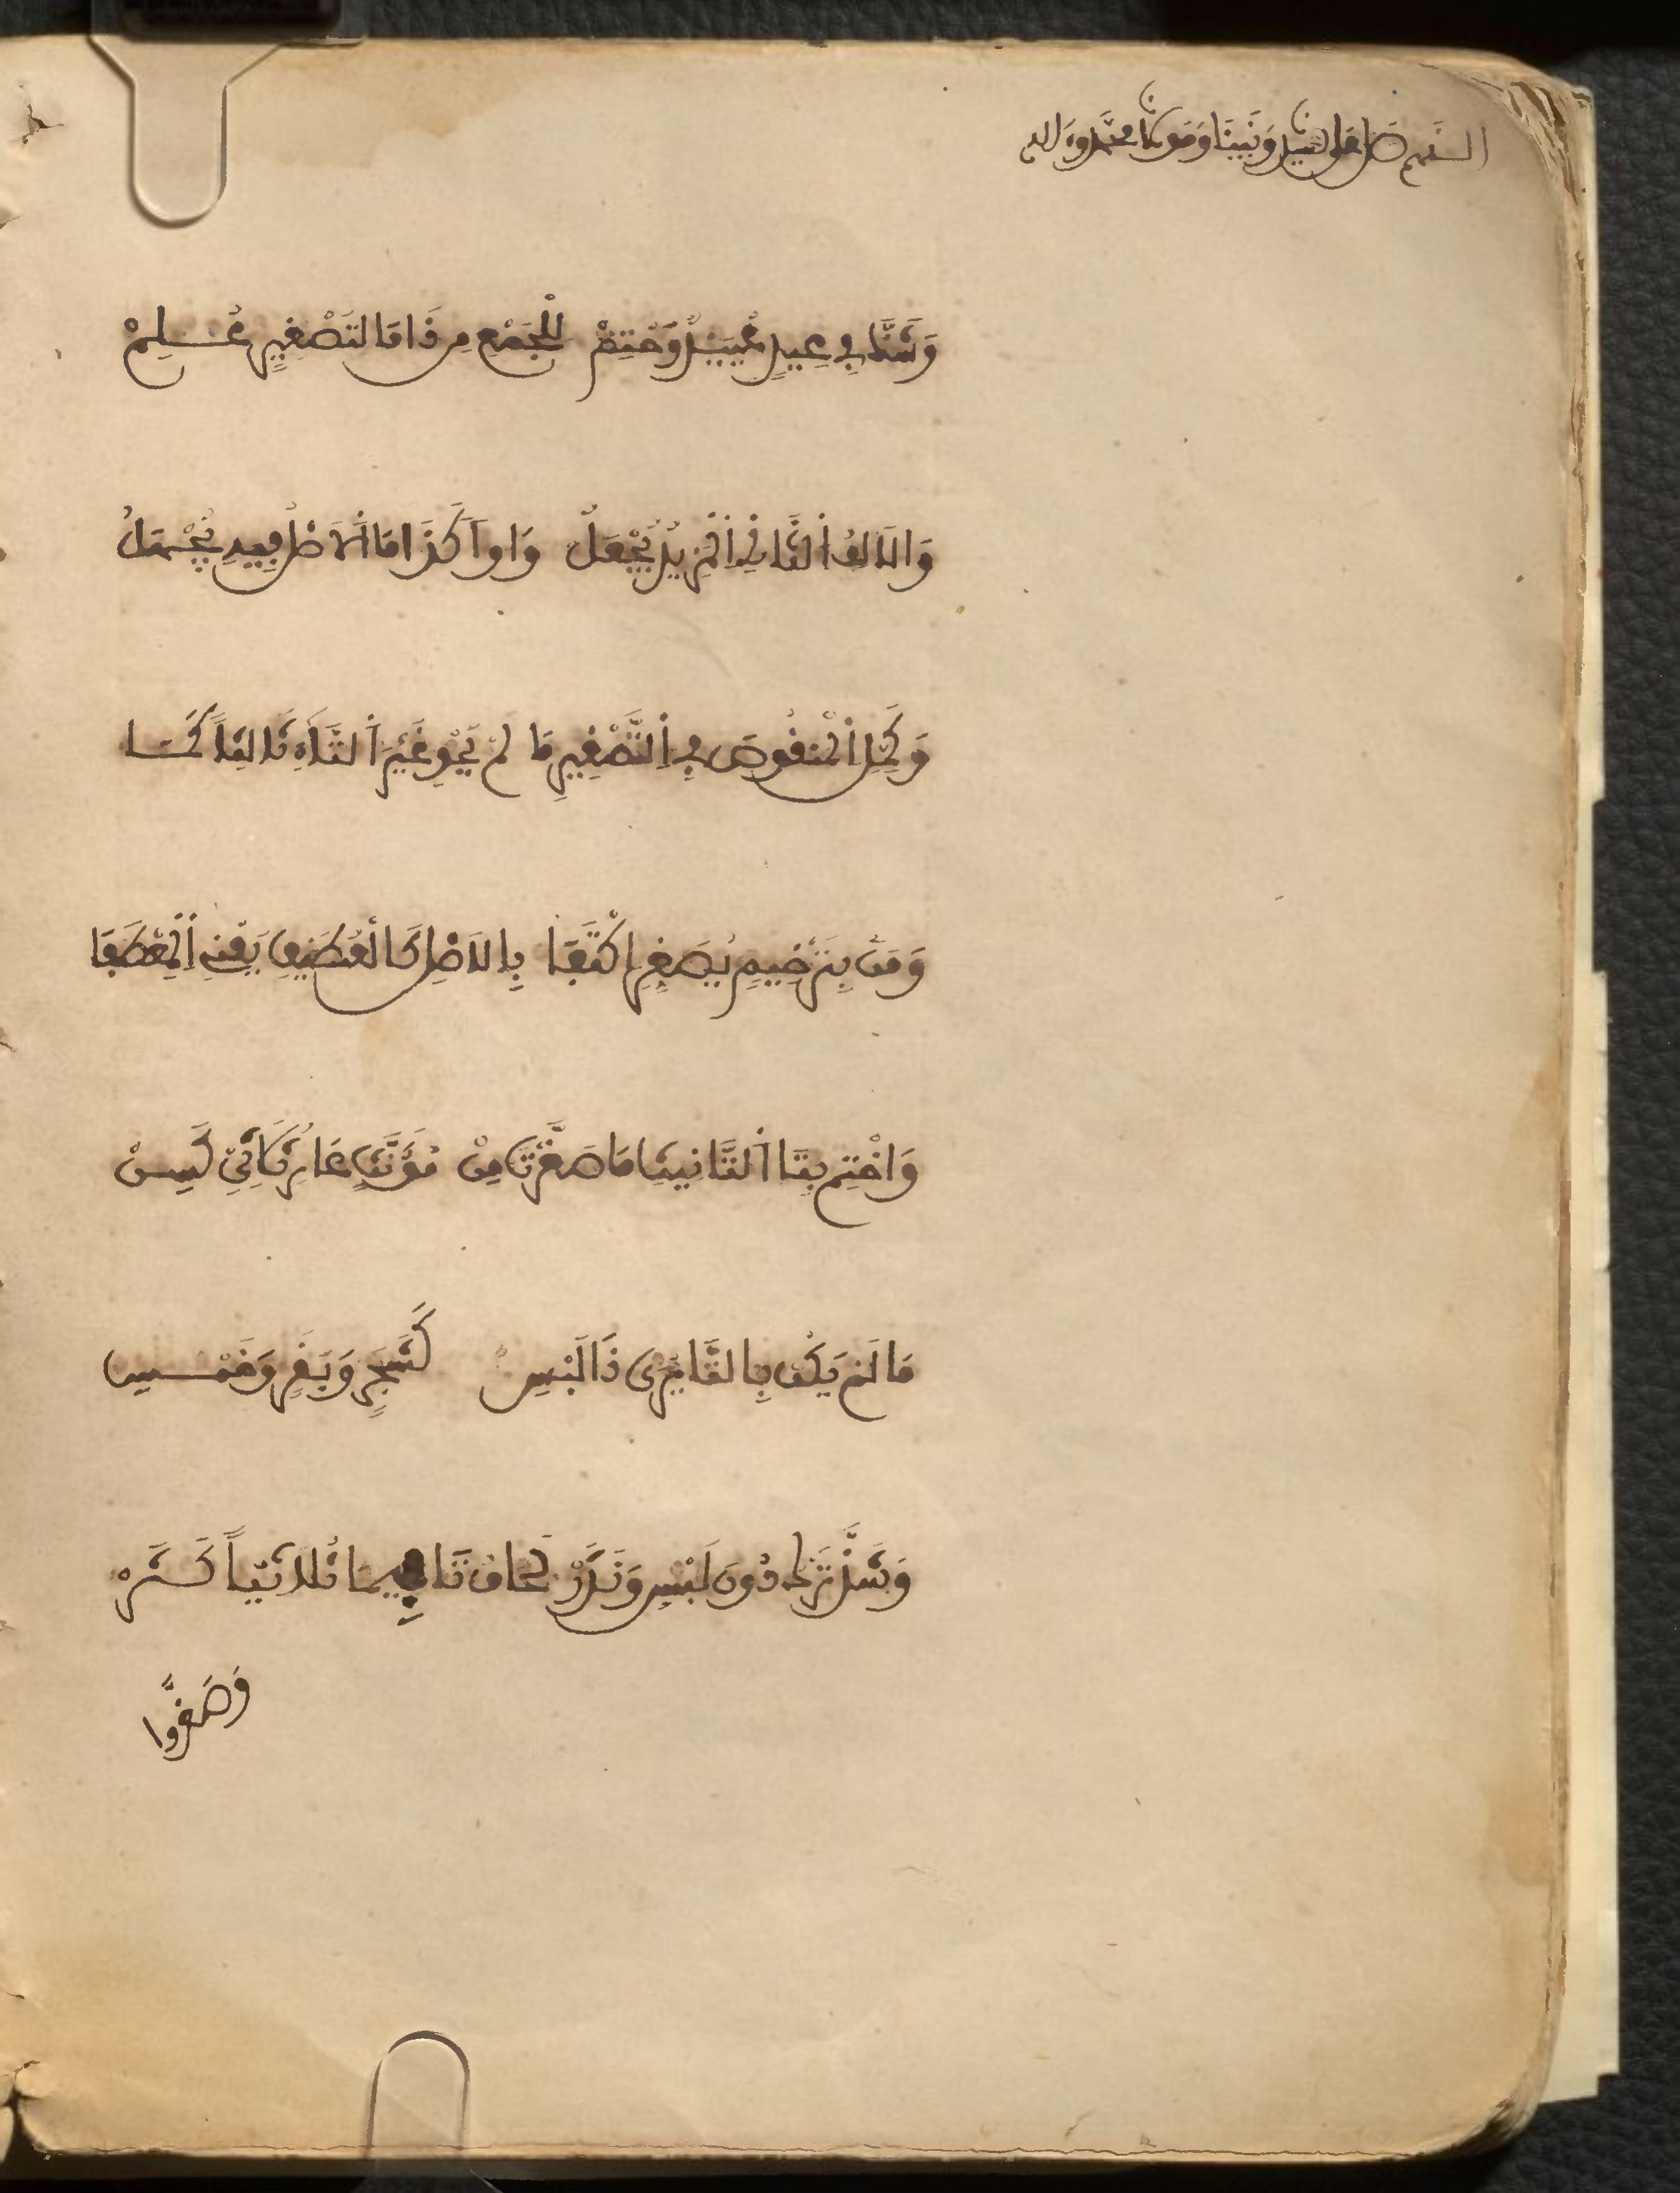 اللهم صل على سيدنا ونبينا ومولانا محمد وءاله
وَشَذَّ فِي عِيدٍ عُيَيْدٌ وَحُتِمْ لِلْجَمْعِ مِن ذَا مَا لتَصْغِيرٍ عُلِمْ
وَالَالِفُ اَلثَّانِ اِلْمَزِيدُ يُجْعَلُ وَاواً كَذَا مَا اَلَاصْلُ فِيهِ يُجْهَلُ
وَكَمِّلِ اِلْمَنقُوصَ فِي اِلتَّصْغِيرِ مَا لَمْ يَحْوِ غَيْرَ اَلتَّاءِ ثَالِثاً كَمَا
وَمَنْ بِتَرْخِيمٍ يُصَغِّرِ اِكْتَفَى بِالَاصْلِ كَالعُطَيْفِ يَعْنِي اِلْمِعْطَفَا
وَاخْتِم بِتَا اَلتَّانِيثِ مَا صَغَّرْتَ مِنْ مُؤَنَّثٍ عَارٍ ثُلَاثِيٍّ كَسِنْ
مَا لَمْ يَكُن بِالتَّا يُرَى ذَا لَبْسِ كَشَجَرٍ وَبَقَرٍ وَخَمْسِ
وَشَذَّ تَرْكٌ دُونَ لَبْسٍ وَنَدَرْ لَحَاقُ تَا فِيمَا ثُلَاثِيّاً كَثَرْ
وَصَغَّرُوا